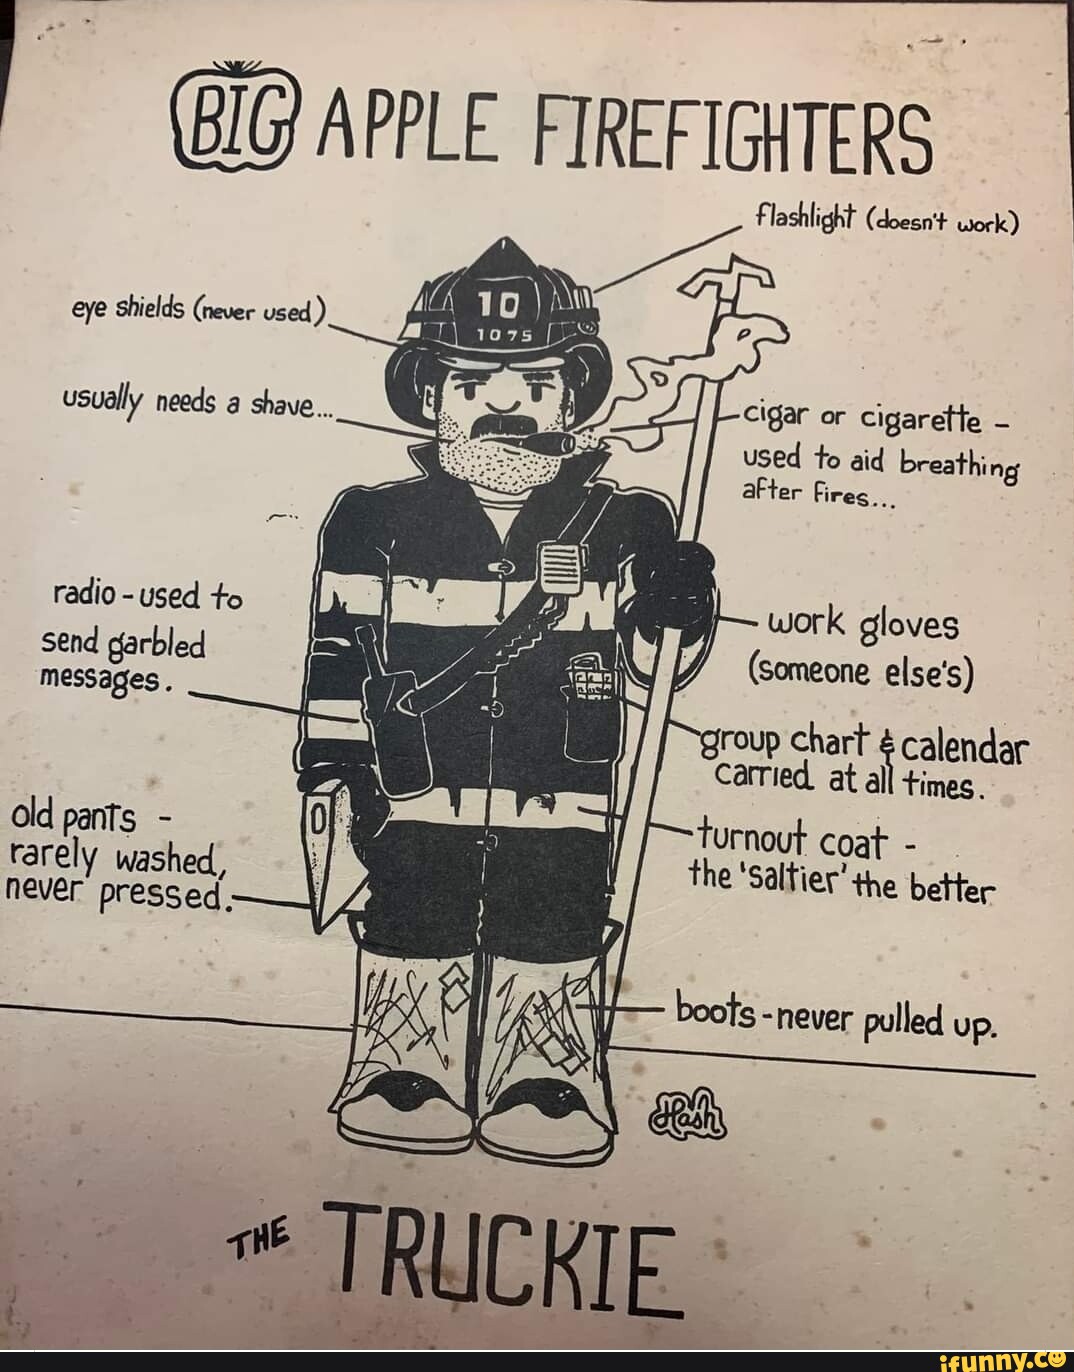 BIG APPLE FIREFIGHTERS
flashlight (doesn't work)
eye shields (never used)
10
1075
usually needs a shave...
cigar or cigarette -
used to aid breathing
after fires...
radio - used to
send garbled
messages.
work gloves
(someone else's)
group chart & calendar
carried at all times.
old pants -
rarely washed,
never pressed.
turnout coat -
the 'saltier' the better
boots - never pulled up.
Hash
THE TRUCKIE
ifunny.co